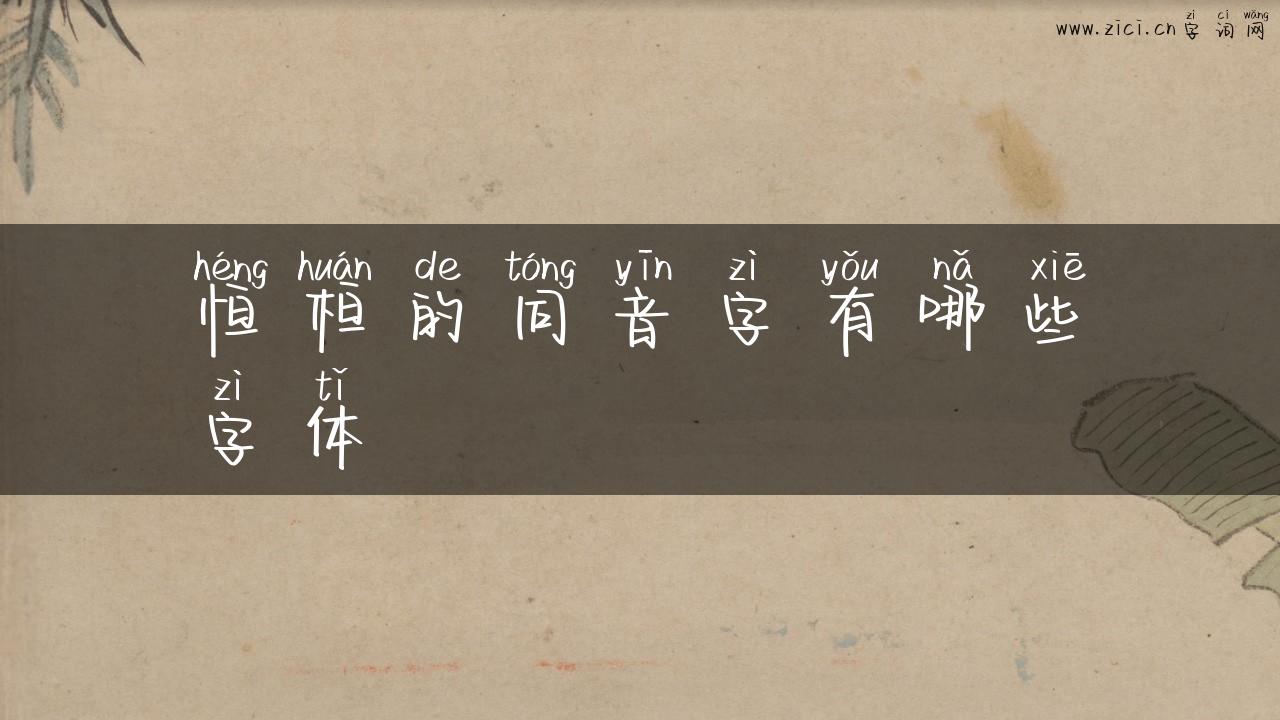 zì cí wǎng
www.zici.cn 字词网
héng huán de tóng yīn zì yǒu nǎ xiē
恒桓的同音字有哪些
zì tǐ
字体